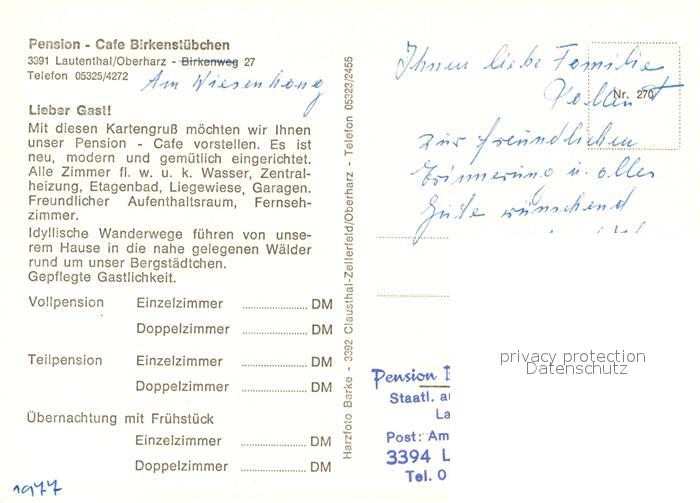 Pension - Cafe Birkenstübchen
3391 Lautenthal/Oberharz - Birkenweg 27
Telefon 05325/4272
Am Wiesenhang
Lieber Gast!
Mit diesen Kartengruß möchten wir Ihnen
unser Pension - Cafe vorstellen. Es ist
neu, modern und gemütlich eingerichtet.
Alle Zimmer fl. w. u. k. Wasser, Zentral-
heizung, Etagenbad, Liegewiese, Garagen.
Freundlicher Aufenthaltsraum, Fernseh-
zimmer.
Idyllische Wanderwege führen von unse-
rem Hause in die nahe gelegenen Wälder
rund um unser Bergstädtchen.
Gepflegte Gastlichkeit.
Vollpension Einzelzimmer ........................ DM
Doppelzimmer ........................ DM
Teilpension Einzelzimmer ........................ DM
Doppelzimmer ........................ DM
Übernachtung mit Frühstück
Einzelzimmer ........................ DM
Doppelzimmer ........................ DM
1977
Harzfoto Barke - 3392 Clausthal-Zellerfeld/Oberharz - Telefon 05323/2455
Ihnen liebe Familie
Nr. 270
zur freundlichen
Erinnerung u. alles
Gute wünschend
privacy protection
Datenschutz
Pension
Staatl. a
La
Post: Am
3394 L
Tel. 0